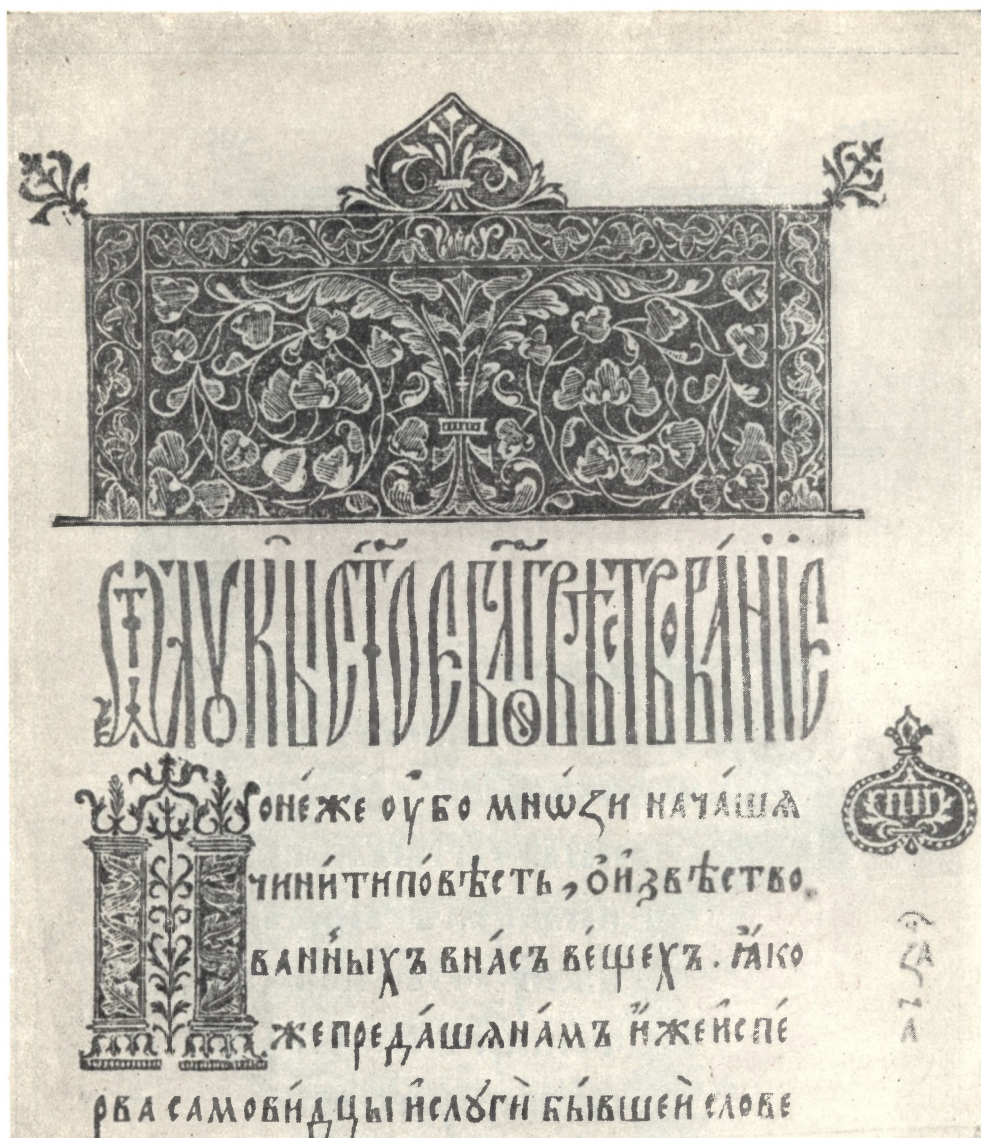 Ѿ лукы ст҃ое бл҃говѣствованїе
Поне́же оу҆бо мнѡ́ѕи нача́шѧ
чини́ти по́вѣсть, ѻ҆ и҆звѣство
ва́нныхъ в на́съ ве́щехъ. ꙗ҆́ко
же преда́шѧ на́мъ и҆̀же и҆спе́
рва самови́дцы и҆ слꙋгѝ бы́вшеи сло́ве